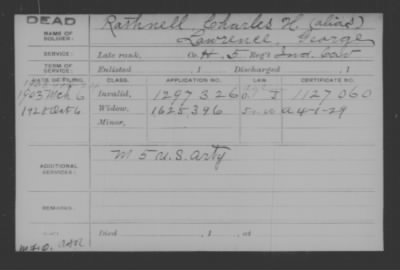 DEAD
NAME OF SOLDIER:
Rathnell Charles H. (alias)
Lawrence, George
SERVICE:
Late rank, Co. H. 5 Reg't Ind. Cav
TERM OF SERVICE:
Enlisted , 1 Discharged , 1
DATE OF FILING. CLASS. APPLICATION NO. LAW. CERTIFICATE NO.
1903 Mch 6 Invalid, 1297326 I 1127060
1928 Oct 6 Widow, 1625.396 A-4-1-29
Minor,
ADDITIONAL SERVICES:
M 5 U.S. Arty
REMARKS:
Died , 1 , at